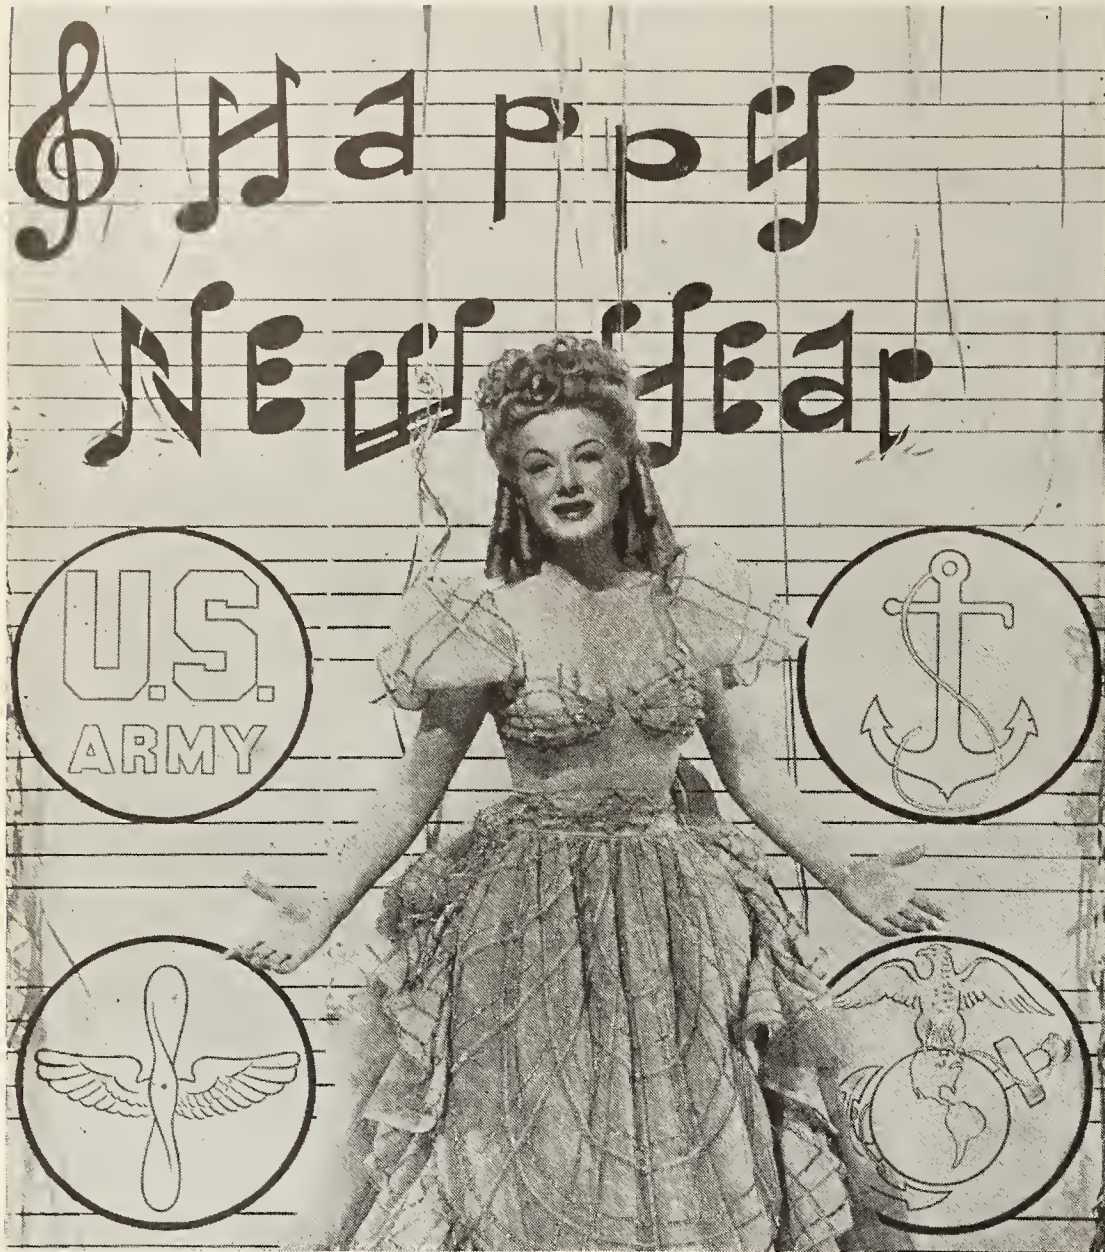 Happy
New Year
U.S.
ARMY